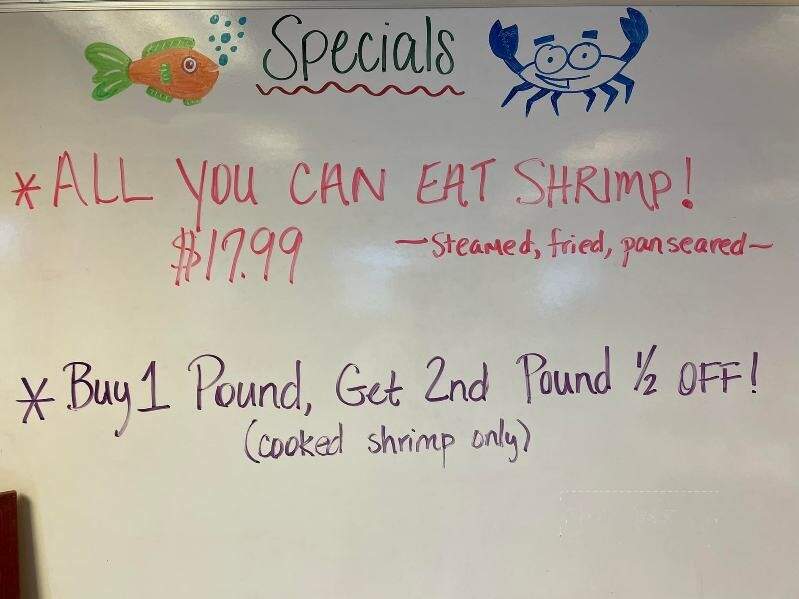 Specials
*ALL YOU CAN EAT SHRIMP!
$17.99 —Steamed, fried, pan seared~
*Buy 1 Pound, Get 2nd Pound ½ OFF!
(cooked shrimp only)